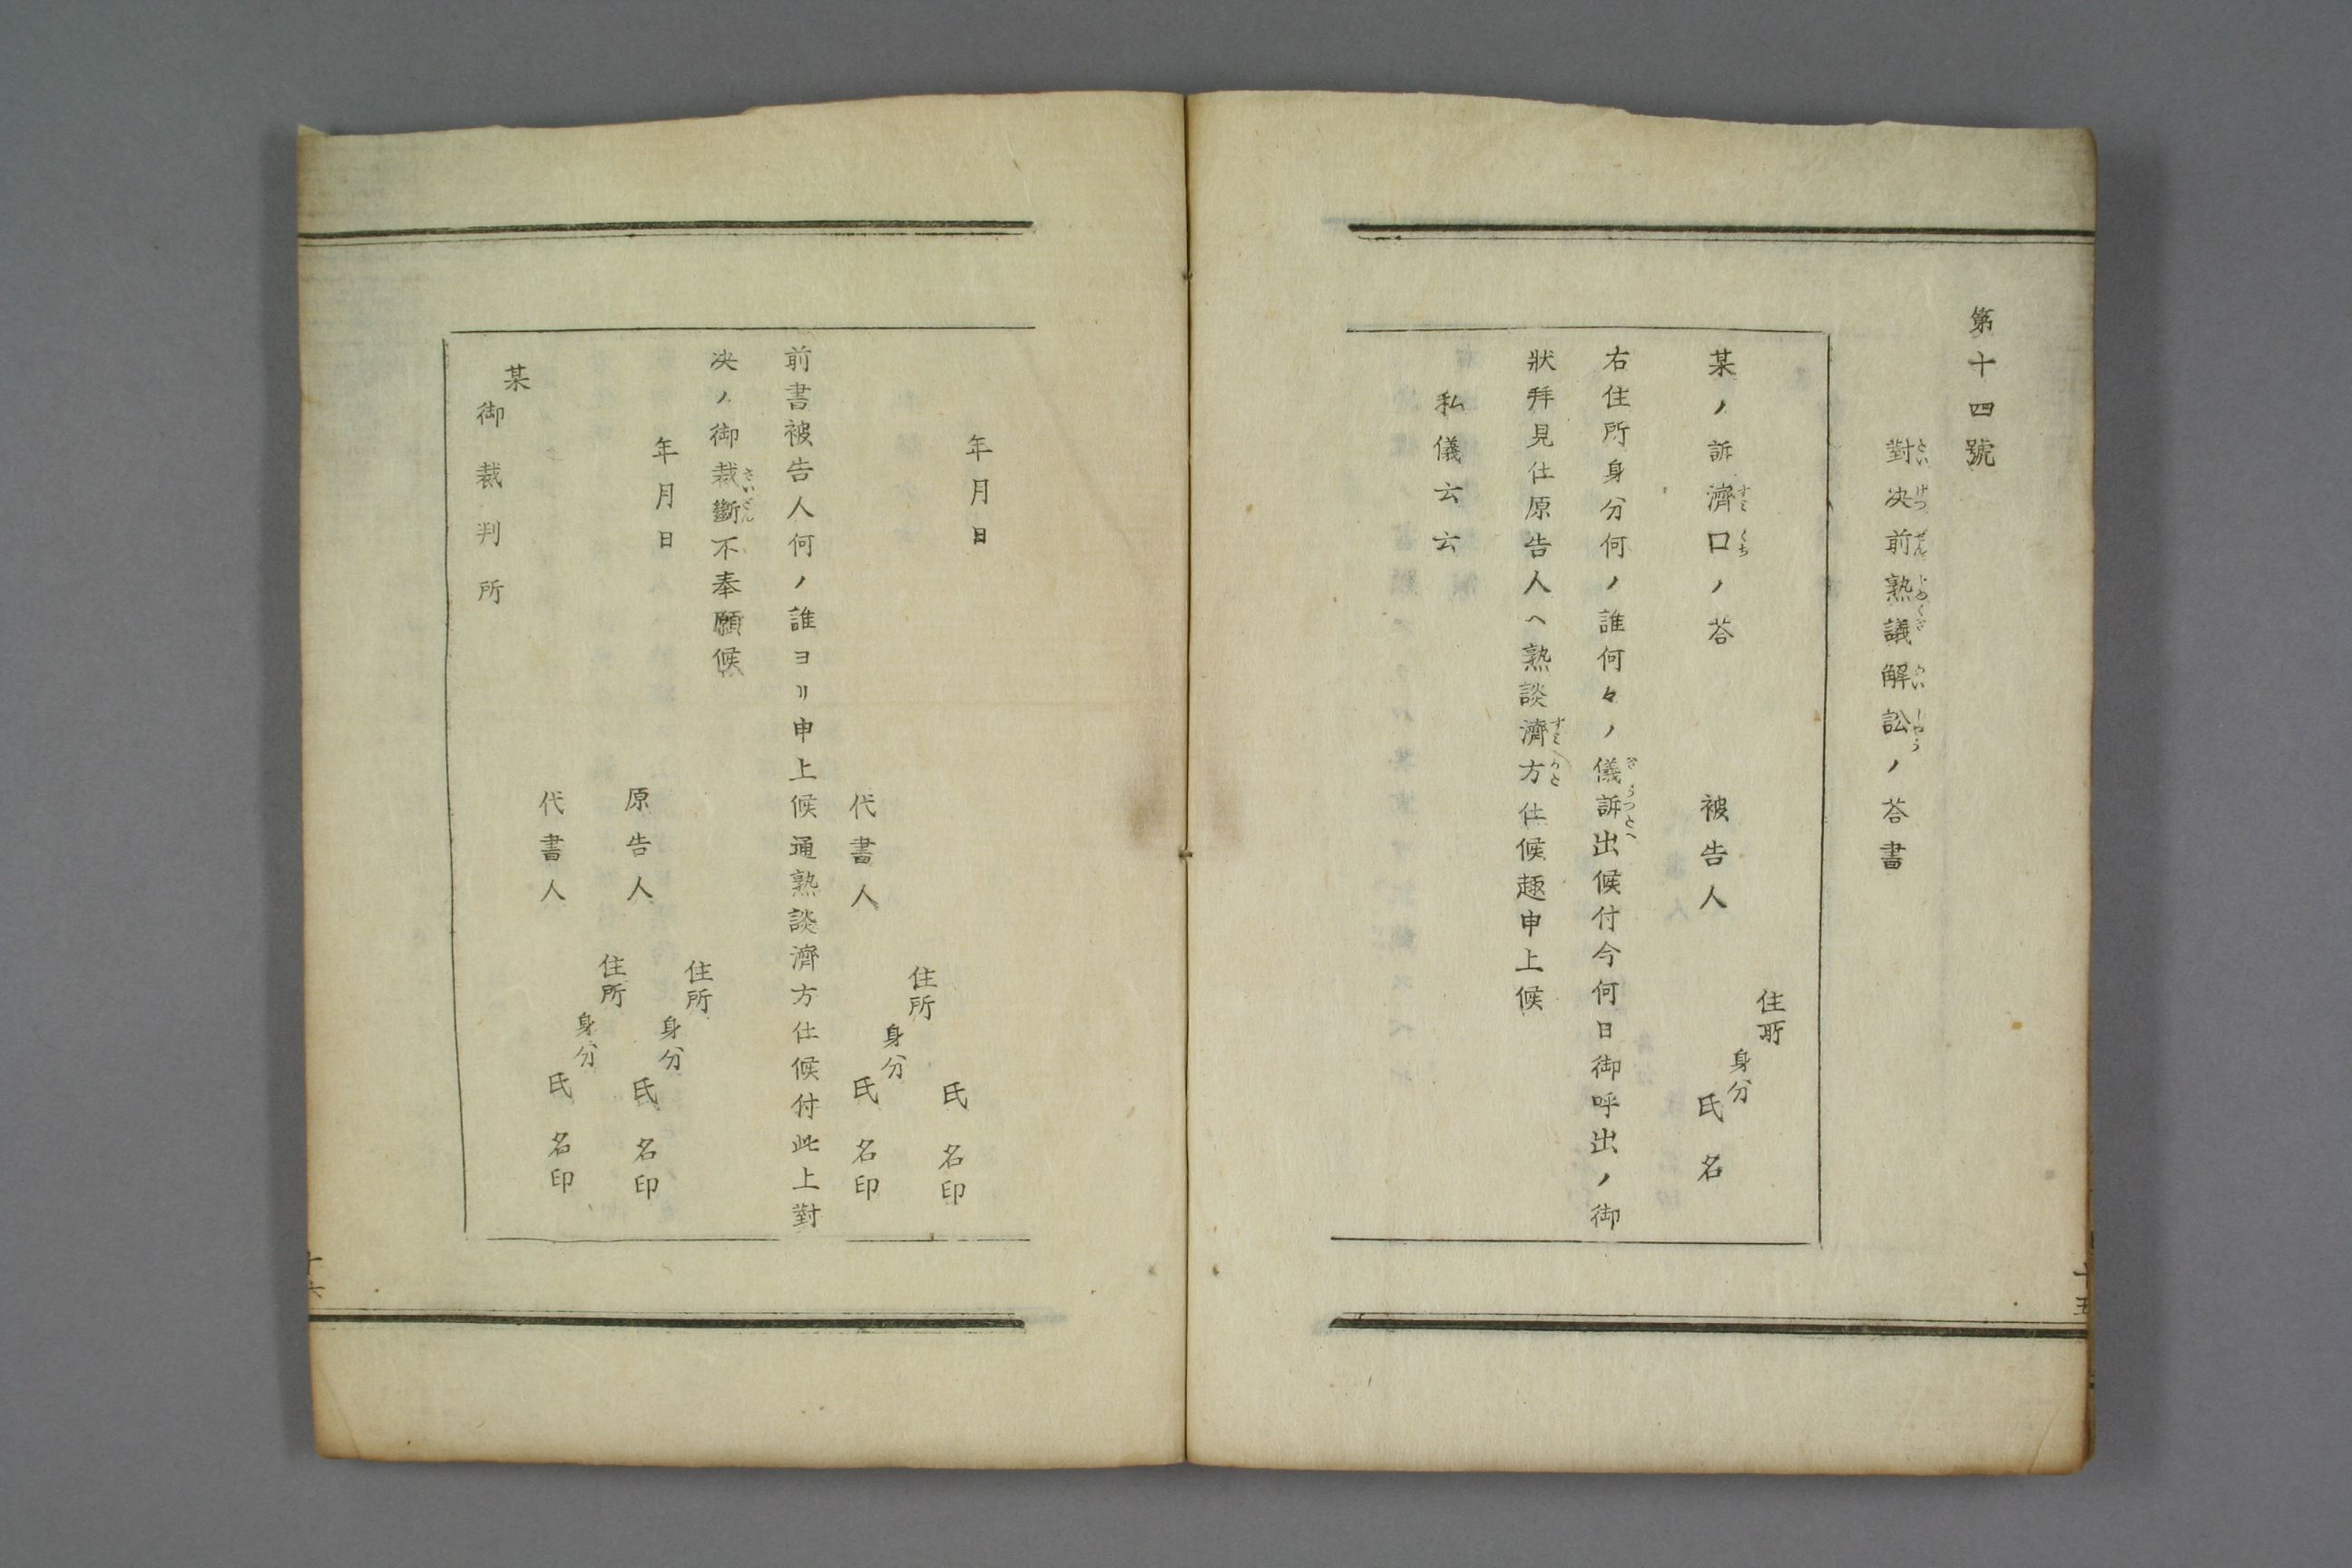 第十四號
對決前熟議解訟ノ荅書
たいけつぜんじゆくぎかいしやう
某ノ訴濟口ノ荅
すみくち
住所
身分
被告人
氏名
右住所身分何ノ誰何々ノ儀訴出候付今何日御呼出ノ御
ぎうつとへ
狀拜見仕原告人ヘ熟談濟方仕候趣申上候
すみかた
私儀云云
十五
年月日
氏名印
住所
身分
代書人
氏名印
前書被告人何ノ誰ヨリ申上候通熟談濟方仕候付此上對
決ノ御裁斷不奉願候
さいだん
年月日
住所
身分
原告人
氏名印
住所
身分
代書人
氏名印
某
御裁判所
十六